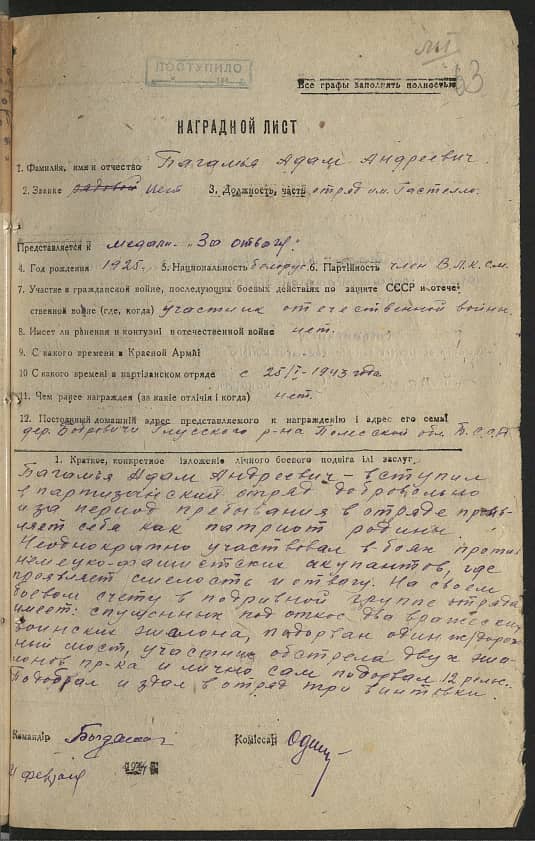 63
ПОСТУПИЛО
Все графы заполнять полностью
НАГРАДНОЙ ЛИСТ
1. Фамилия, имя и отчество Багамья Адам Андреевич.
2. Звание рядовой 3. Должность, часть отряд им. Гастелло.
Представляется к медали „За отвагу"
4. Год рождения 1925. 5. Национальность белорус 6. Партийность член В.Л.К.С.М.
7. Участие в гражданской войне, последующих боевых действиях по защите СССР и отече-
ственной войне (где, когда) участник отечественной войны.
8. Имеет ли ранения и контузии в отечественной войне нет.
9. С какого времени в Красной Армії
10 С какого времені в партізанском отряде с 25/I-1943 года
11. Чем ранее награжден (за какіе отлічія і когда) нет.
12. Постоянный домашній адрес представляемого к награжденію и адрес его семьі
дер. Бобровичи Глусского р-на Полесской обл. Б.С.С.Р.
1. Краткое, конкретное ізложеніе лічного боевого подвіга ілі заслуг
Багамья Адам Андреевич - вступил
в партизанский отряд добровольно
и за период пребывания в отряде прояв-
ляет себя как патриот родины.
Неоднократно участвовал в боях против
немецко-фашистских акупантов, где
проявляет смелость и отвагу. На своем
боевом счету в подривной группе отряда
имеет: спущенных под откос два вражеских
воинских эшелона, подорван один ж/дорож-
ный мост, участник обстрела двух эше-
лонов пр-ка и лично сам подорвал 12 рельс.
Подобрал и здал в отряд три винтовки.
Командір Комісcар
февраля 1944 г.